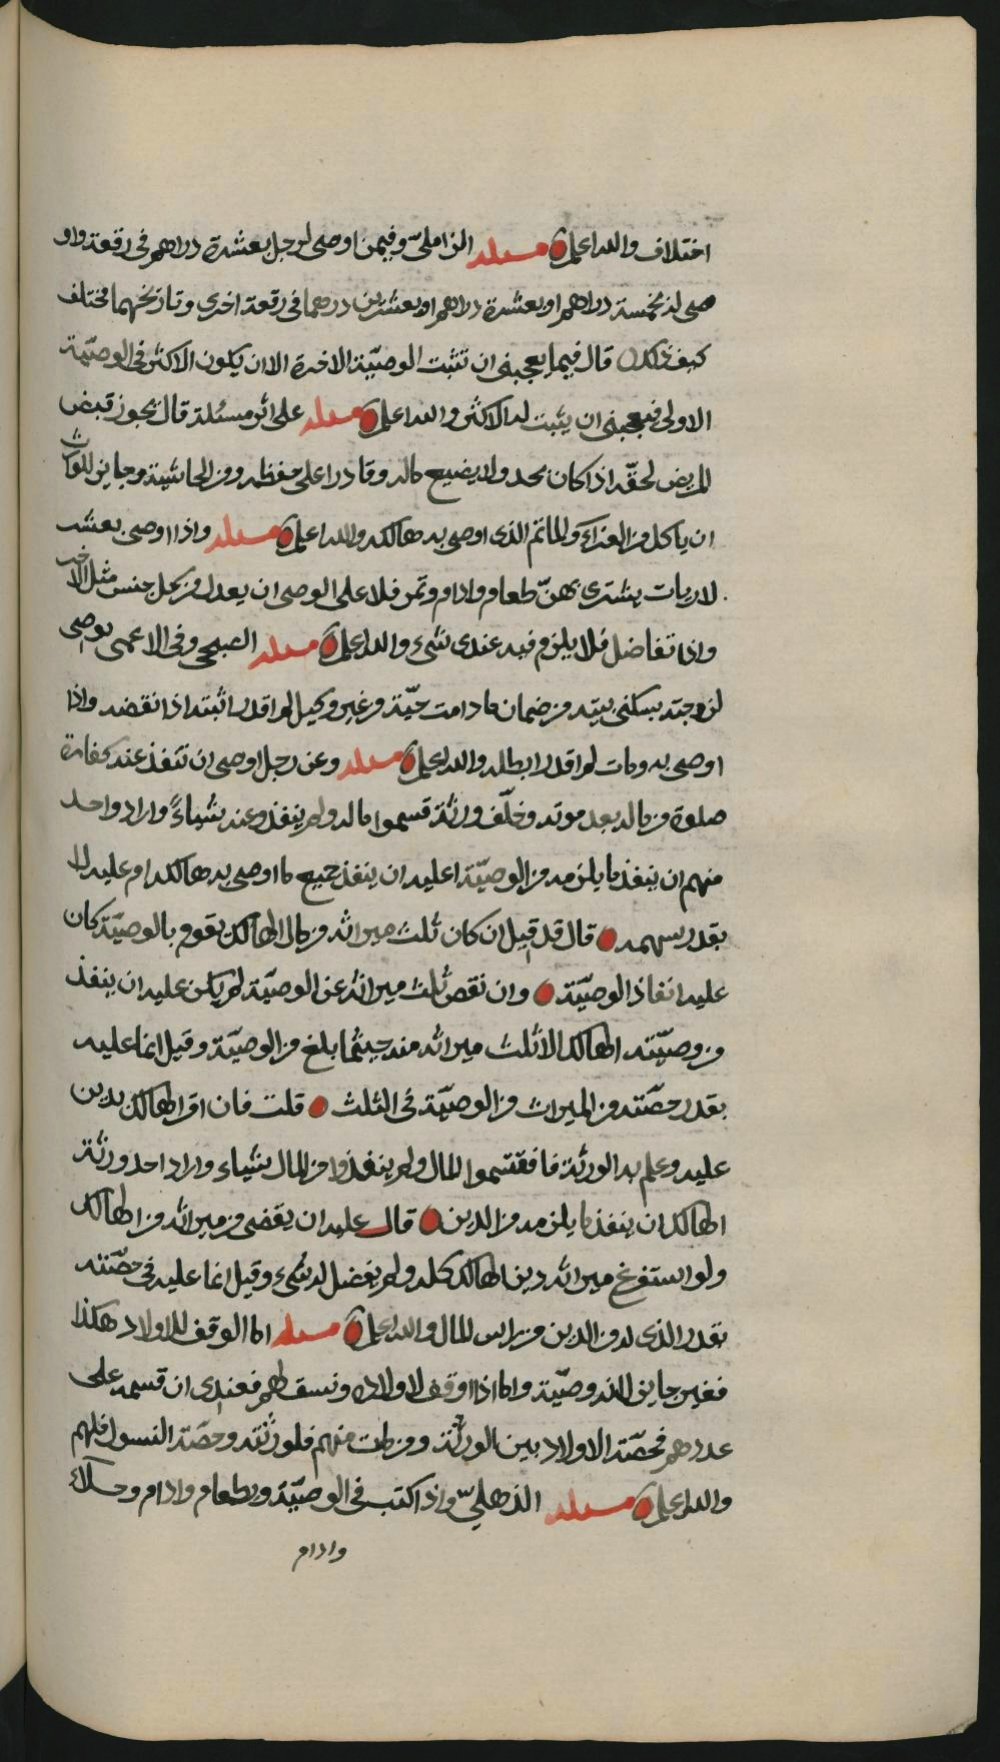 اختلاف والله اعلم مسئله الزاملىّ وفيمن اوصى لرجل بعشرة دراهم فى رقعة واو
صى له بخمسة دراهم او بعشرة دراهم او بعشرين درهما فى رقعة اخرى وتاريخهما مختلف
كيف ذلك قال فيما يعجبنى ان تثبت الوصيّة الاخرة الا ان يكون الاكثر فى الوصيّة
الاولى فيعجبنى ان يثبت له الاكثر والله اعلم مسئله على اثر مسئلة قال يجوز قبض
المريض لحقّه اذا كان بحد ولا يضيع ماله وقادرا على حفظه ومن الحاشية وجايز للوارث
ان ياكل من العزاء والماتم الذى اوصى به هالكه والله اعلم مسئله واذا اوصى بعشر
لاريات يشترى بهنّ طعام وادام وتمر فلا على الوصى ان يعدل من كل جنس مثل الاخر
واذا تفاضل فلا يلزم فيه عندى شىء والله اعلم مسئله الصبحى وفى الاعمى يوصى
لزوجته بسكنى بيته من ضمان ما دامت حيّة من غير وكيل لم اقدر اثبته اذا نقضه واذا
اوصى به ومات لم اقدر ابطله والله اعلم مسئله وعن رجل اوصى ان تنفذ عنه كفارة
صلوة من ماله بعد موته وخلّف ورثة قسموا ماله ولم ينفذوا عنه شياءً واراد واحد
منهم ان ينفذ ما يلزمه من الوصيّة اعليه ان ينفذ جميع ما اوصى به هالكه ام عليه الا
بقدر سهمه قال قد قيل ان كان ثلث ميراثه من مال الهالك يقوم بالوصيّة كان
عليه انفاذ الوصيّة وان نقص ثلث ميراثه عن الوصيّة لم يكن عليه ان ينفذ
من وصيّته الهالك الا ثلث ميراثه منه حيثما بلغ من الوصيّة وقيل انما عليه
بقدر حصّته من الميراث من الوصيّة فى الثلث قلت فان اقر الهالك بدين
عليه وعلم به الورثة فاقتسموا المال ولم ينفذوا من المال شياء واراد احد ورثة
الهالك ان ينفذ ما يلزمه من الدين قال عليه ان يقضى من ميراثه من الهالك
ولو استفرغ ميراثه دين الهالك كله ولم يفضل له شىء وقيل انما عليه فى حصّته
بقدر الذى له من الدين من راس المال والله اعلم مسئله اما الوقف للاولاد هكذا
فغير جايز لانه وصيّة واما اذا اوقف لاولاده ونسولهم فعندى ان قسمه على
عددهم فحصّة الاولاد بين الورثة ومن مات منهم فلورثته وحصّة النسول فلهم
والله اعلم مسئله الذهلىّ واذا كتب فى الوصيّة وبطعام وادام وحلاء
وادام